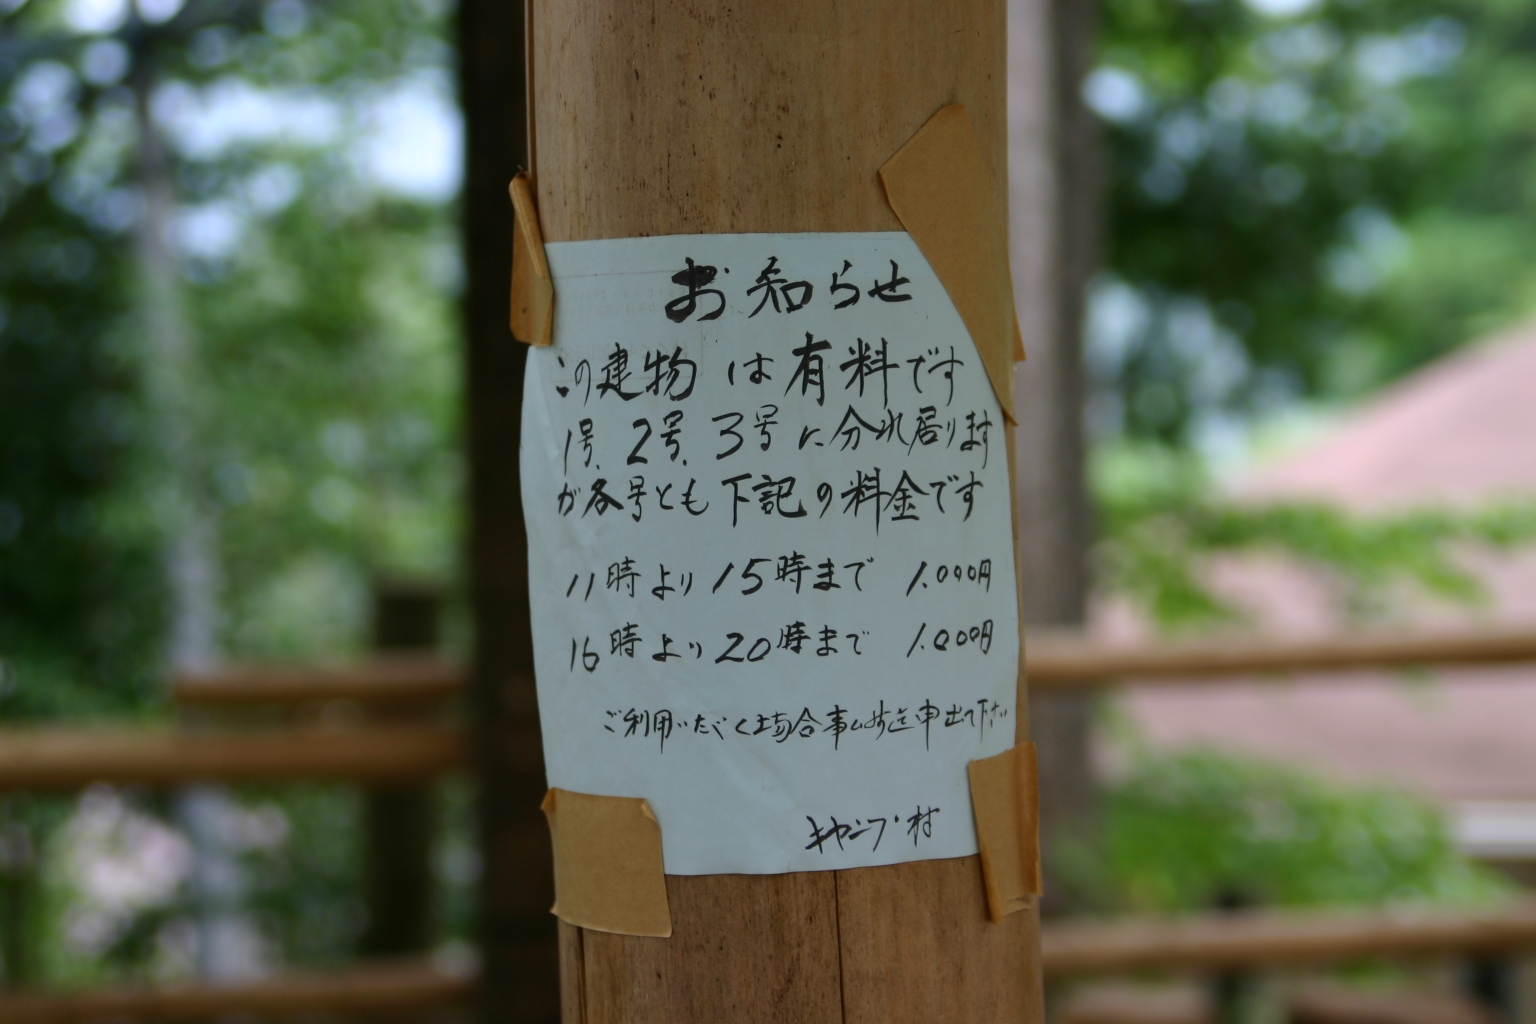 お知らせ
この建物は有料です
1号、2号、3号に分れ居ります
が各号とも下記の料金です
11時より15時まで 1.000円
16時より20時まで 1.000円
ご利用いただく場合事ム所迄申出て下さい
キャンプ村